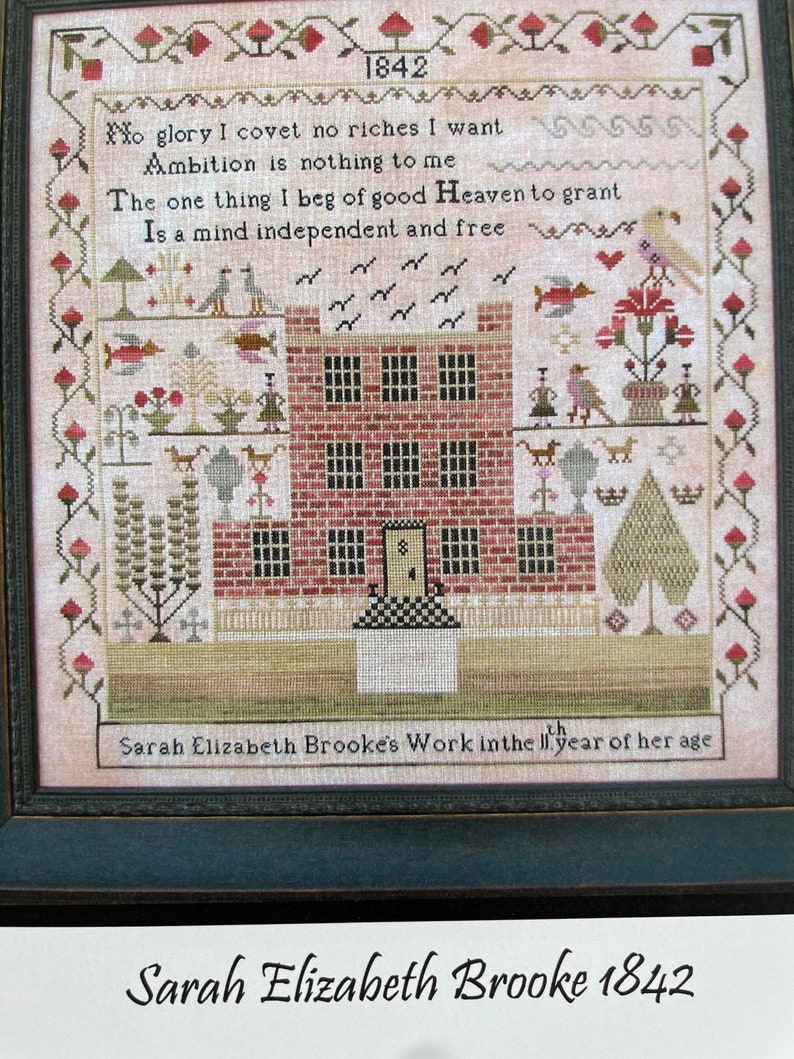 1842
No glory I covet no riches I want
Ambition is nothing to me
The one thing I beg of good Heaven to grant
Is a mind independent and free
8
Sarah Elizabeth Brooke's Work in the 11th year of her age
Sarah Elizabeth Brooke 1842